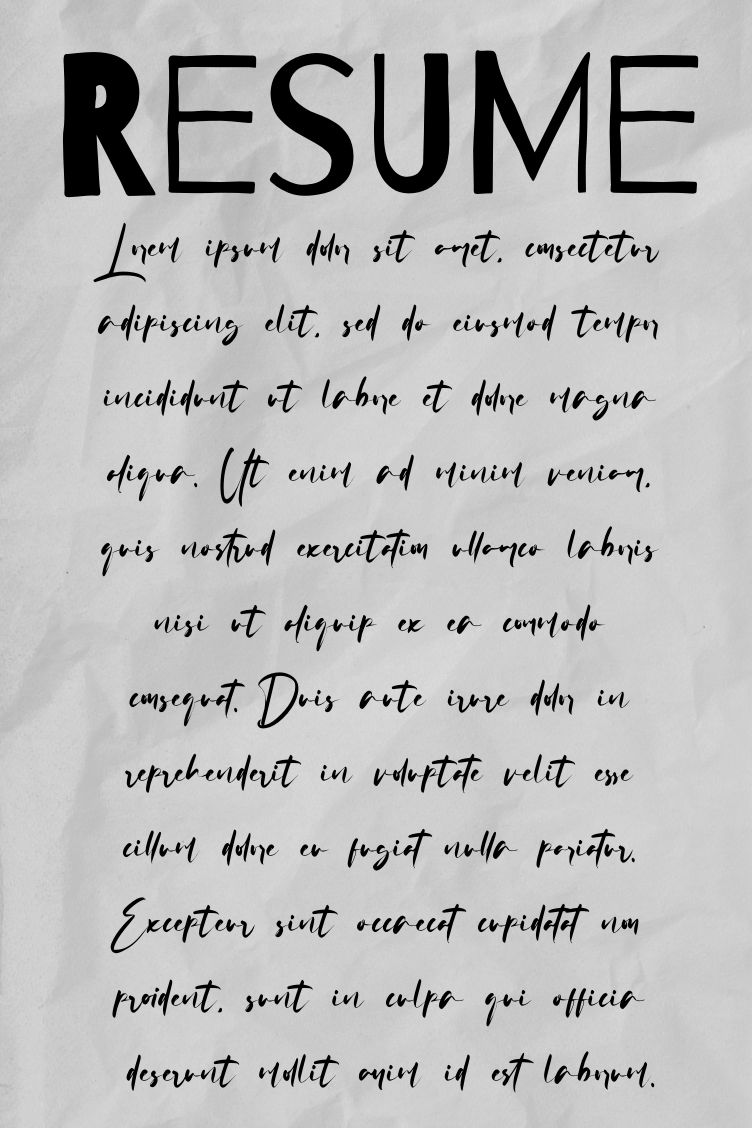 RESUME
Lorem ipsum dolor sit amet, consectetur
adipiscing elit, sed do eiusmod tempor
incididunt ut labore et dolore magna
aliqua. Ut enim ad minim veniam,
quis nostrud exercitation ullamco laboris
nisi ut aliquip ex ea commodo
consequat. Duis aute irure dolor in
reprehenderit in voluptate velit esse
cillum dolore eu fugiat nulla pariatur.
Excepteur sint occaecat cupidatat non
proident, sunt in culpa qui officia
deserunt mollit anim id est laborum.